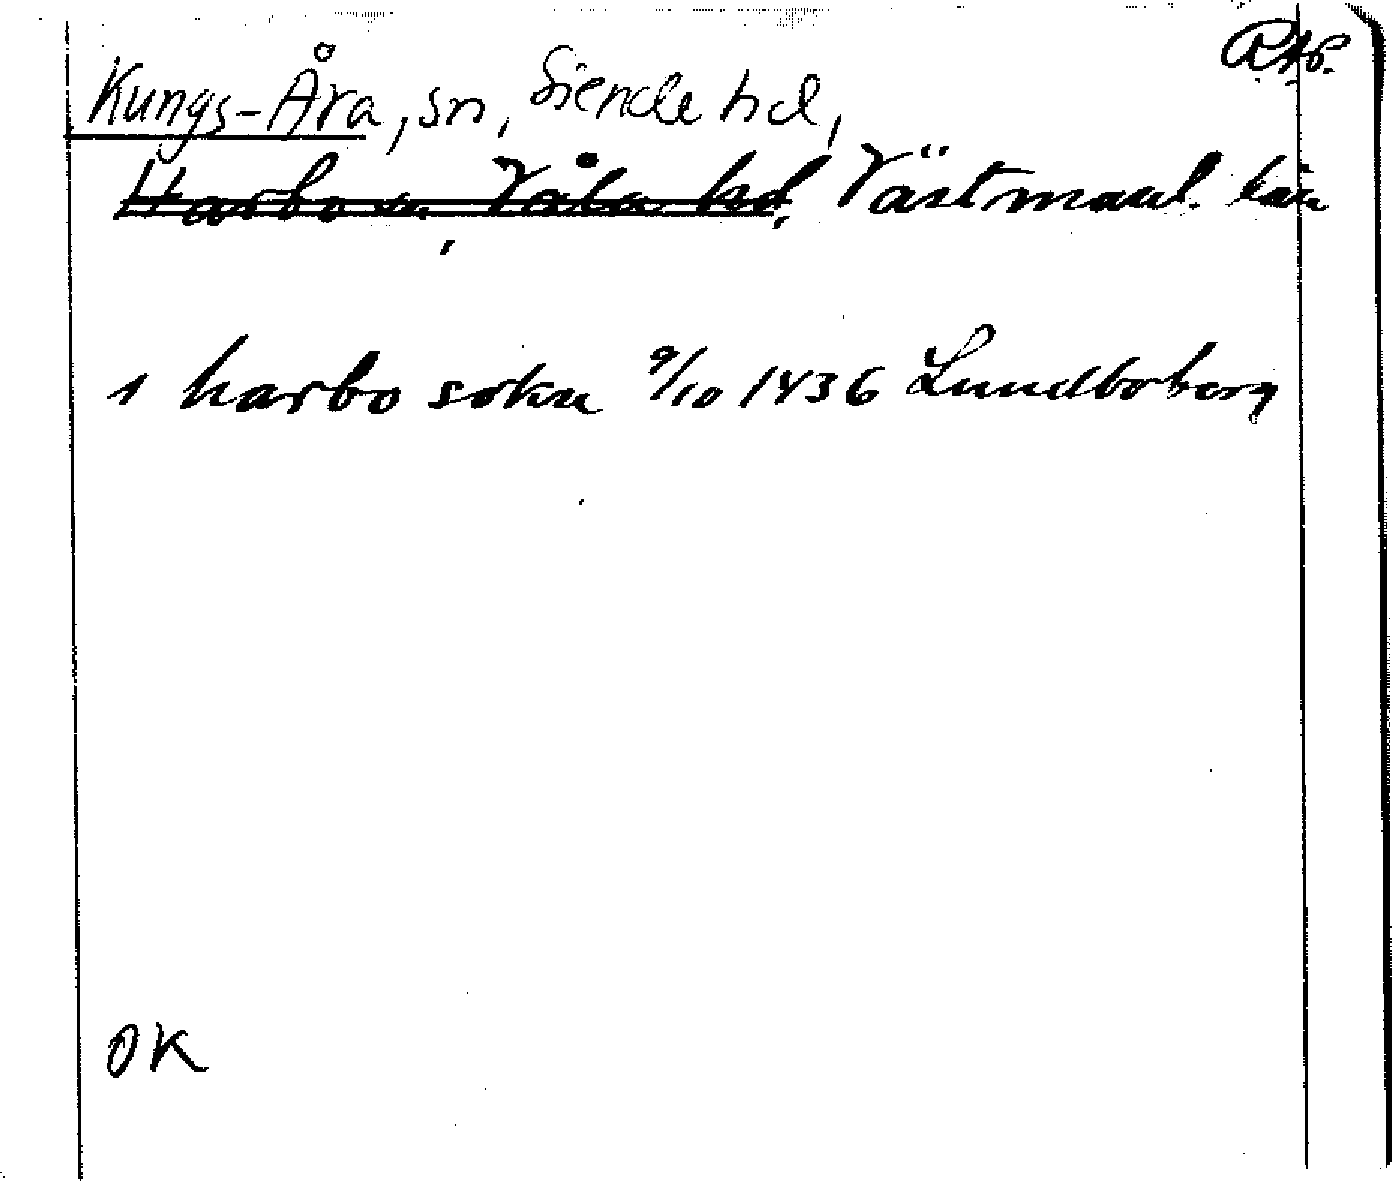 RAp.
Kungs-Åra, sn, Siende hd,
Harbo sn, Våla hd, Västmanl. län
1 harbo sokn 9/10 1436 Lundboberg
OK